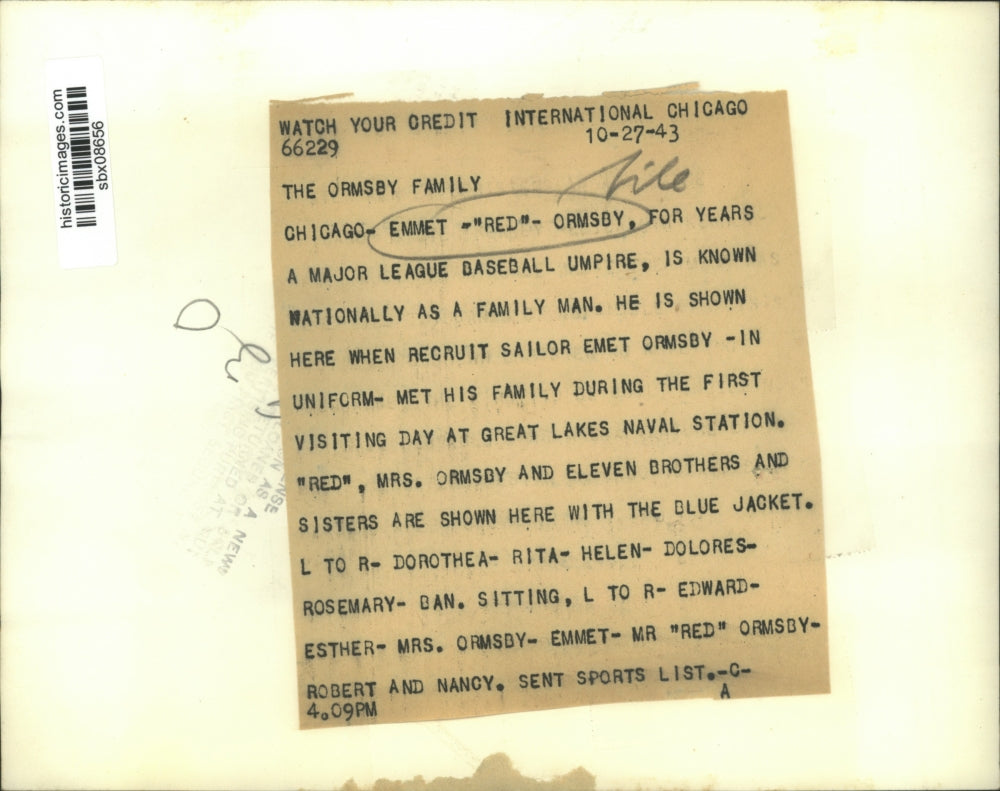 historicimages.com
sbx08656
WATCH YOUR CREDIT INTERNATIONAL CHICAGO
66229 10-27-43
file
THE ORMSBY FAMILY
CHICAGO- EMMET -"RED"- ORMSBY, FOR YEARS
A MAJOR LEAGUE BASEBALL UMPIRE, IS KNOWN
NATIONALLY AS A FAMILY MAN. HE IS SHOWN
HERE WHEN RECRUIT SAILOR EMET ORMSBY -IN
UNIFORM- MET HIS FAMILY DURING THE FIRST
VISITING DAY AT GREAT LAKES NAVAL STATION.
"RED", MRS. ORMSBY AND ELEVEN BROTHERS AND
SISTERS ARE SHOWN HERE WITH THE BLUE JACKET.
L TO R- DOROTHEA- RITA- HELEN- DOLORES-
ROSEMARY- BAN. SITTING, L TO R- EDWARD-
ESTHER- MRS. ORMSBY- EMMET- MR "RED" ORMSBY-
ROBERT AND NANCY. SENT SPORTS LIST.-C-
A
4.09PM